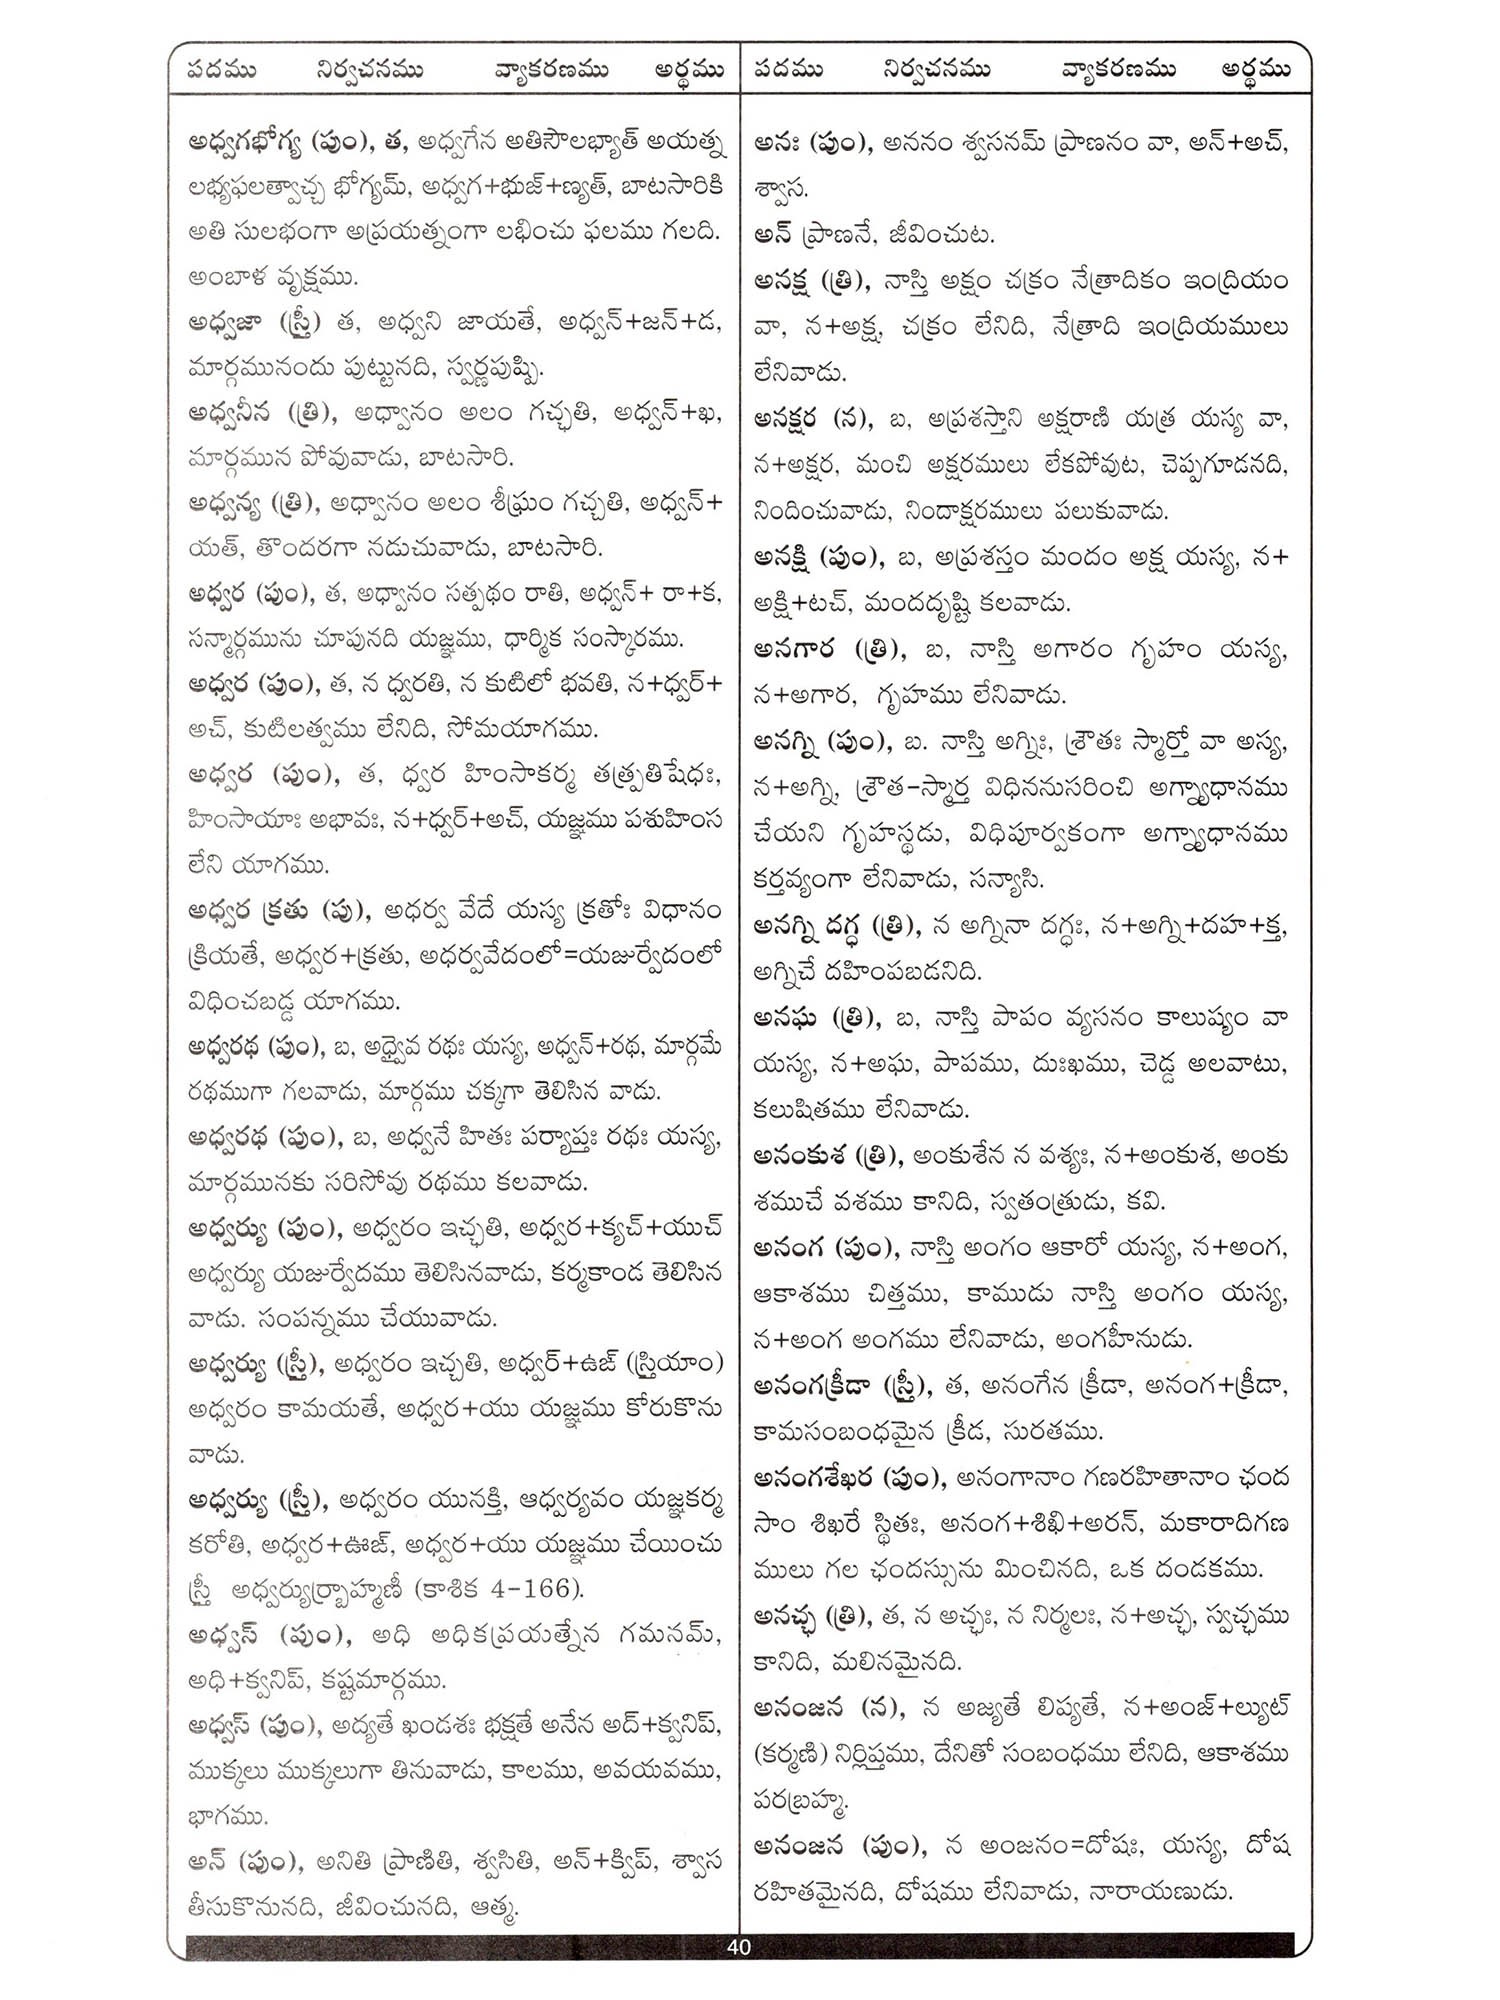 పదము నిర్వచనము వ్యాకరణము అర్థము
అధ్వగభోగ్య (పుం), త, అధ్వగేన అతిసౌలభ్యాత్ అయత్న
లభ్యఫలత్వాచ్చ భోగ్యమ్, అధ్వగ+భుజ్+ణ్యత్, బాటసారికి
అతి సులభంగా అప్రయత్నంగా లభించు ఫలము గలది.
అంబాళ వృక్షము.
అధ్వజా (స్త్రీ) త, అధ్వని జాయతే, అధ్వన్+జన్+డ,
మార్గమునందు పుట్టునది, స్వర్ణపుష్పి.
అధ్వనీన (త్రి), అధ్వానం అలం గచ్ఛతి, అధ్వన్+ఖ,
మార్గమున పోవువాడు, బాటసారి.
అధ్వన్య (త్రి), అధ్వానం అలం శీఘ్రం గచ్చతి, అధ్వన్+
యత్, తొందరగా నడుచువాడు, బాటసారి.
అధ్వర (పుం), త, అధ్వానం సత్పథం రాతి, అధ్వన్+ రా+క,
సన్మార్గమును చూపునది యజ్ఞము, ధార్మిక సంస్కారము.
అధ్వర (పుం), త, న ధ్వరతి, న కుటిలో భవతి, న+ధ్వర్+
అచ్, కుటిలత్వము లేనిది, సోమయాగము.
అధ్వర (పుం), త, ధ్వర హింసాకర్మ తత్ప్రతిషేధః,
హింసాయాః అభావః, న+ధ్వర్+అచ్, యజ్ఞము పశుహింస
లేని యాగము.
అధ్వర క్రతు (పు), అధర్వ వేదే యస్య క్రతోః విధానం
క్రియతే, అధ్వర+క్రతు, అధర్వవేదంలో=యజుర్వేదంలో
విధించబడ్డ యాగము.
అధ్వరథ (పుం), బ, అధ్వైవ రథః యస్య, అధ్వన్+రథ, మార్గమే
రథముగా గలవాడు, మార్గము చక్కగా తెలిసిన వాడు.
అధ్వరథ (పుం), బ, అధ్వనే హితః పర్యాప్తః రథః యస్య,
మార్గమునకు సరిసోవు రథము కలవాడు.
అధ్వర్యు (పుం), అధ్వరం ఇచ్ఛతి, అధ్వర+క్యచ్+యుచ్
అధ్వర్యు యజుర్వేదము తెలిసినవాడు, కర్మకాండ తెలిసిన
వాడు. సంపన్నము చేయువాడు.
అధ్వర్యు (స్త్రీ), అధ్వరం ఇచ్చతి, అధ్వర్+ఉఙ్ (స్త్రియాం)
అధ్వరం కామయతే, అధ్వర+యు యజ్ఞము కోరుకొను
వాడు.
అధ్వర్యు (స్త్రీ), అధ్వరం యునక్తి, ఆధ్వర్యవం యజ్ఞకర్మ
కరోతి, అధ్వర+ఊఙ్, అధ్వర+యు యజ్ఞము చేయించు
స్త్రీ అధ్వర్యుర్బ్రాహ్మణీ (కాశిక 4-166).
అధ్వస్ (పుం), అధి అధికప్రయత్నేన గమనమ్,
అధి+క్వనిప్, కష్టమార్గము.
అధ్వస్ (పుం), అద్యతే ఖండశః భక్షతే అనేన అద్+క్వనిప్,
ముక్కలు ముక్కలుగా తినువాడు, కాలము, అవయవము,
భాగము.
అన్ (పుం), అనితి ప్రాణితి, శ్వసితి, అన్+క్విప్, శ్వాస
తీసుకొనునది, జీవించునది, ఆత్మ.
పదము నిర్వచనము వ్యాకరణము అర్థము
అనః (పుం), అననం శ్వసనమ్ ప్రాణనం వా, అన్+అచ్,
శ్వాస.
అన్ ప్రాణనే, జీవించుట.
అనక్ష (త్రి), నాస్తి అక్షం చక్రం నేత్రాదికం ఇంద్రియం
వా, న+అక్ష, చక్రం లేనిది, నేత్రాది ఇంద్రియములు
లేనివాడు.
అనక్షర (న), బ, అప్రశస్తాని అక్షరాణి యత్ర యస్య వా,
న+అక్షర, మంచి అక్షరములు లేకపోవుట, చెప్పగూడనది,
నిందించువాడు, నిందాక్షరములు పలుకువాడు.
అనక్షి (పుం), బ, అప్రశస్తం మందం అక్ష యస్య, న+
అక్షి+టచ్, మందదృష్టి కలవాడు.
అనగార (త్రి), బ, నాస్తి అగారం గృహం యస్య,
న+అగార, గృహము లేనివాడు.
అనగ్ని (పుం), బ. నాస్తి అగ్నిః, శ్రౌతః స్మార్తో వా అస్య,
న+అగ్ని, శ్రౌత-స్మార్త విధిననుసరించి అగ్న్యాధానము
చేయని గృహస్థడు, విధిపూర్వకంగా అగ్న్యాధానము
కర్తవ్యంగా లేనివాడు, సన్యాసి.
అనగ్ని దగ్ధ (త్రి), న అగ్నినా దగ్ధః, న+అగ్ని+దహ+క్త,
అగ్నిచే దహింపబడనిది.
అనఘ (త్రి), బ, నాస్తి పాపం వ్యసనం కాలుష్యం వా
యస్య, న+అఘ, పాపము, దుఃఖము, చెడ్డ అలవాటు,
కలుషితము లేనివాడు.
అనంకుశ (త్రి), అంకుశేన న వశ్యః, న+అంకుశ, అంకు
శముచే వశము కానిది, స్వతంత్రుడు, కవి.
అనంగ (పుం), నాస్తి అంగం ఆకారో యస్య, న+అంగ,
ఆకాశము చిత్తము, కాముడు నాస్తి అంగం యస్య,
న+అంగ అంగము లేనివాడు, అంగహీనుడు.
అనంగక్రీడా (స్త్రీ), త, అనంగేన క్రీడా, అనంగ+క్రీడా,
కామసంబంధమైన క్రీడ, సురతము.
అనంగశేఖర (పుం), అనంగానాం గణరహితానాం ఛంద
సాం శిఖరే స్థితః, అనంగ+శిఖి+అరన్, మకారాదిగణ
ములు గల ఛందస్సును మించినది, ఒక దండకము.
అనచ్ఛ (త్రి), త, న అచ్ఛః, న నిర్మలః, న+అచ్ఛ, స్వచ్ఛము
కానిది, మలినమైనది.
అనంజన (న), న అజ్యతే లిప్యతే, న+అంజ్+ల్యుట్
(కర్మణి) నిర్లిప్తము, దేనితో సంబంధము లేనిది, ఆకాశము
పరబ్రహ్మ.
అనంజన (పుం), న అంజనం=దోషః, యస్య, దోష
రహితమైనది, దోషము లేనివాడు, నారాయణుడు.
40